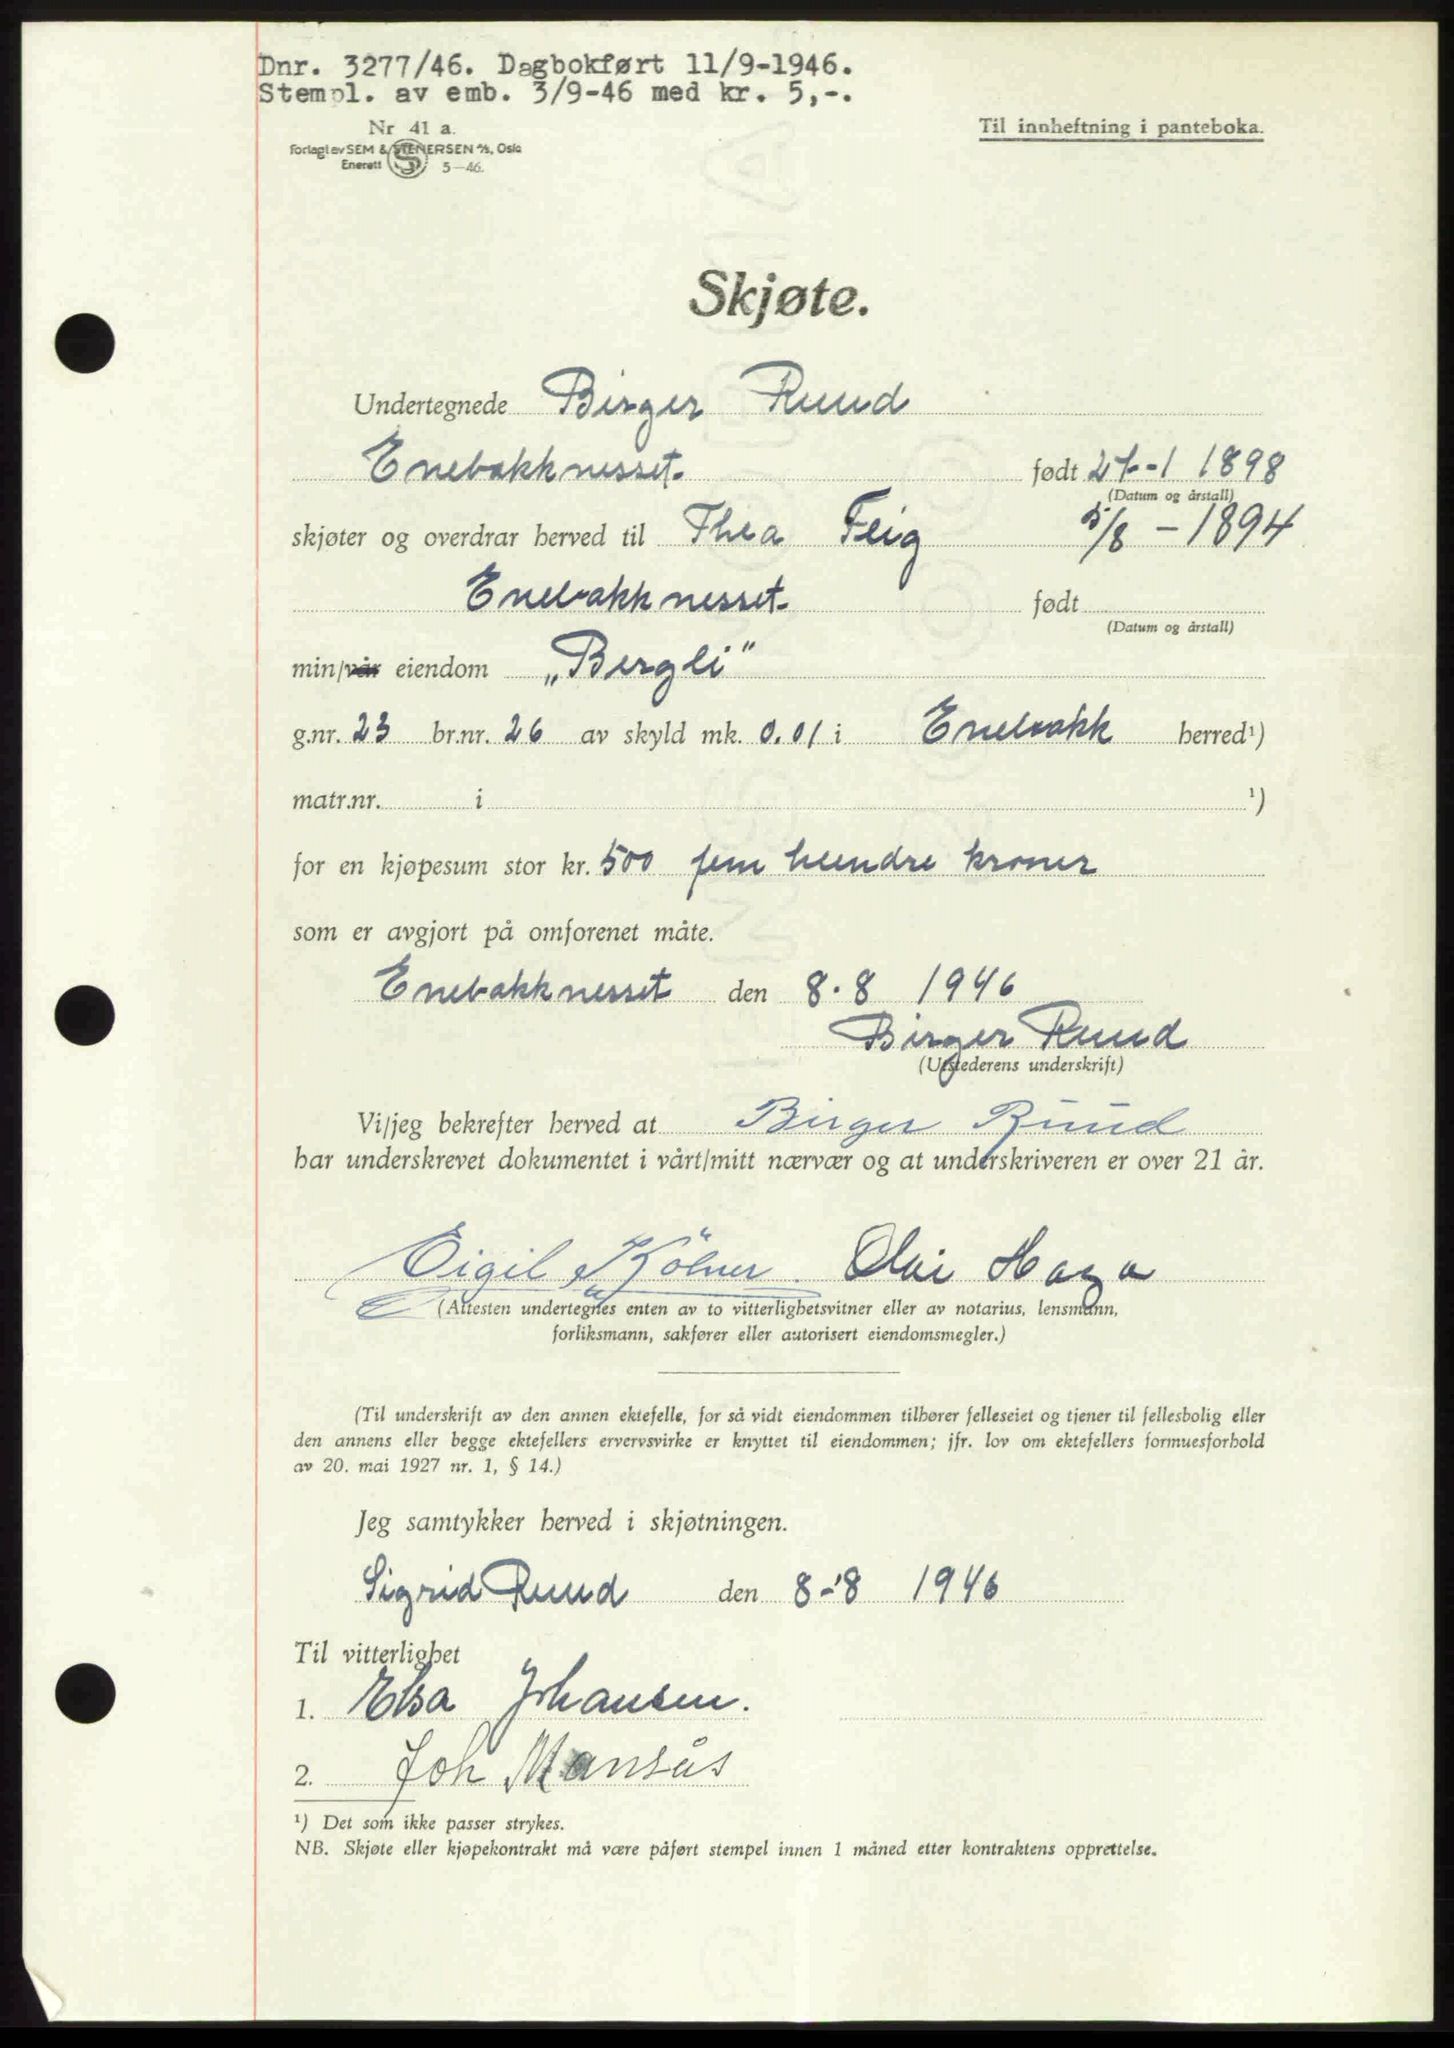 Dnr. 3277/46. Dagbokført 11/9-1946.
Stempl. av emb. 3/9-46 med kr. 5,-.
Nr 41 a.
Forlagt av SEM & STENERSEN A/S, Oslo
Enerett 5—46.
Til innheftning i panteboka.
Skjøte.
Undertegnede Birger Ruud
Enebakknesset. født -1 1898
(Datum og årstall)
skjøter og overdrar herved til Thea Feig 5/8 - 1894
Enebakknesset. født
(Datum og årstall)
min/vår eiendom „Bergli"
g.nr. 23 br.nr. 26 av skyld mk. 0.01 i Enebakk herred¹)
matr.nr. i ¹)
for en kjøpesum stor kr. 500 fem hundre kroner
som er avgjort på omforenet måte.
Enebakknesset den 8.8 1946
Birger Ruud
(Utstederens underskrift)
Vi/jeg bekrefter herved at Birger Ruud
har underskrevet dokumentet i vårt/mitt nærvær og at underskriveren er over 21 år.
Eigil Kölner. Olai Haga
(Attesten undertegnes enten av to vitterlighetsvitner eller av notarius, lensmann,
forliksmann, sakfører eller autorisert eiendomsmegler.)
(Til underskrift av den annen ektefelle, for så vidt eiendommen tilhører felleseiet og tjener til fellesbolig eller
den annens eller begge ektefellers ervervsvirke er knyttet til eiendommen; jfr. lov om ektefellers formuesforhold
av 20. mai 1927 nr. 1, § 14.)
Jeg samtykker herved i skjøtningen.
Sigrid Ruud den 8-8 1946
Til vitterlighet
1. Elsa Johansen.
2. Joh Mansås
¹) Det som ikke passer strykes.
NB. Skjøte eller kjøpekontrakt må være påført stempel innen 1 måned etter kontraktens opprettelse.